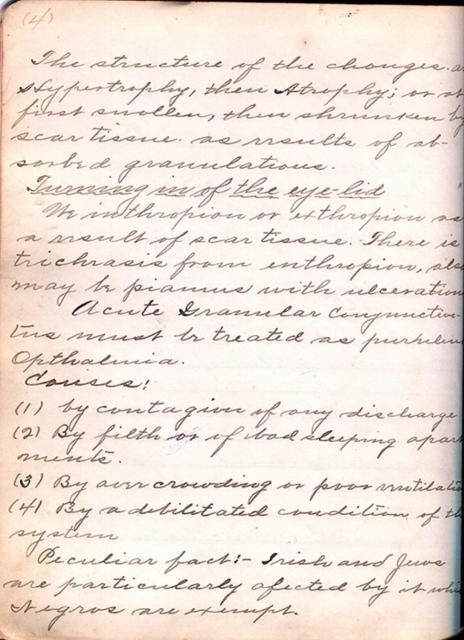 (4)
The structure of the changes. a
Hypertrophy, then Atrophy; or at
first swollen, then shrunken by
scar tissue. as results of ab-
sorbed granulations.
Turning in of the eye-lid
We inthropion or exthropion as
a result of scar tissue. There is
trichrasis from enthropion, also
may be piannus with ulceration
Acute Granular Conjunctiv-
tus must be treated as purhlen
Opthalmia.
Couises!
(1) by contagion of any discharge
(2) By filth or of bad sleeping apart
ments.
(3) By over crowding or poor ventilatio
(4) By a debilitated condition of th
system
Peculiar fact:- Irish and Jews
are particularly afected by it whi
Negros are exempt.